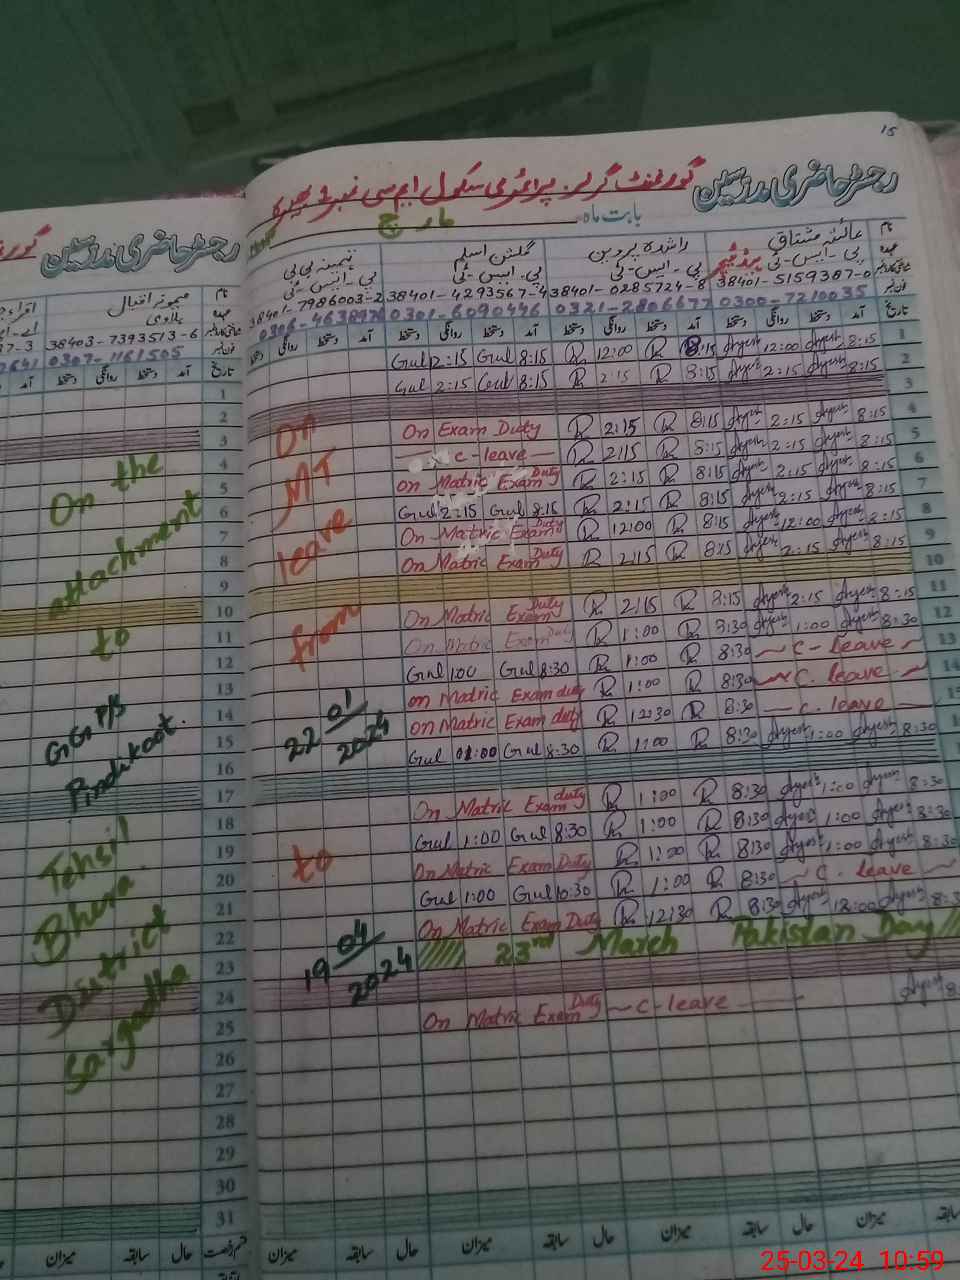 15
رجسٹر حاضری مدرسین گورنمنٹ گرلز پرائمری سکول ایم سی نمبر
بابت ماہ مارچ
نام عائشہ مشتاق راشدہ پروین گلشن اسلم ثمینہ بی بی
عہدہ پی-ایس-ٹی ہیڈ ٹیچر پی-ایس-ٹی پی-ایس-ٹی پی-ایس-ٹی
38401-5159387-0 38401-0285724-8 38401-4293567-4 38401-7986003-2
فون نمبر 0300-7210035 0321-2806677 0301-6090446
تاریخ آمد دستخط روانگی دستخط آمد دستخط روانگی دستخط آمد دستخط روانگی دستخط
Gul 2:15 Gul 8:15 R 12:00 R 8:15 Ayesh 12:00 Ayesh 8:15 1
Gul 2:15 Gul 8:15 R 2:15 R 8:15 Ayesh 2:15 Ayesh 8:15 2
3
On Exam Duty R 2:15 R 8:15 Ayesh 2:15 Ayesh 8:15 4
C-leave R 2:15 R 8:15 Ayesh 2:15 Ayesh 8:15 5
On Matric Exam Duty R 2:15 R 8:15 Ayesh 2:15 Ayesh 8:15 6
Gul 2:15 Gul 8:15 R 2:15 R 8:15 Ayesh 2:15 Ayesh 8:15 7
On Matric Exam Duty R 12:00 R 8:15 Ayesh 12:00 Ayesh 8:15 8
On Matric Exam Duty R 2:15 R 8:15 Ayesh 2:15 Ayesh 8:15 9
10
On Matric Exam Duty R 2:15 R 8:15 Ayesh 2:15 Ayesh 8:15 11
On Matric Exam Duty R 1:00 R 8:30 Ayesh 1:00 Ayesh 8:30 12
Gul 1:00 Gul 8:30 R 1:00 R 8:30 C-leave 13
On Matric Exam duty R 1:00 R 8:30 C. leave 14
On Matric Exam duty R 12:30 R 8:30 C. leave
Gul 01:00 Gul 8:30 R 1:00 R 8:30 Ayesh 1:00 Ayesh 8:30
On Matric Exam duty R 1:00 R 8:30 Ayesh 1:00 Ayesh 8:30
Gul 1:00 Gul 8:30 R 1:00 R 8:30 Ayesh 1:00 Ayesh 8:30
On Matric Exam Duty R 1:00 R 8:30 Ayesh 1:00 Ayesh 8:30
Gul 1:00 Gul 10:30 R 1:00 R 8:30 C. leave
On Matric Exam Duty R 12:30 R 8:30 Ayesh 12:00 Ayesh
23rd March Pakistan Day
On Matric Exam Duty C-leave Ayesh
On
MT
leave
from
22 01/2024
to
19 04/2024
میزان سابقہ حال میزان سابقہ حال میزان سابقہ حال میزان
رجسٹر حاضری مدرسین
نام میمونہ اقبال
38403-7393513-6
فون نمبر 0307-1161505
تاریخ آمد دستخط روانگی دستخط آمد
1
2
3
4
5
6
7
8
9
10
11
12
13
14
15
16
17
18
19
20
21
22
23
24
25
26
27
28
29
30
31
On the
attachment
to
GGP/S
Pindikoot.
Tehsil
Bhera
District
Sargodha
قسم رخصت حال سابقہ میزان
25-03-24 10:59